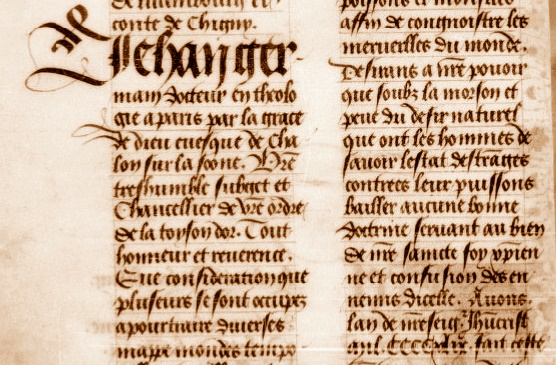 conte de Chigny.
Jehan ger
main docteur en theolo
gie a paris par la grace
de dieu euesque de Cha
lon sur la soone. Vre
treshumble subget et
Chancellier de vre ordre
de la toyson dor. Tout
honneur et reuerence.
Eue consideration que
pluseurs se sont occupez
a pourtraire diuerses
mappe mondes tempo
poissons et monstres
affin de congnoistre les
merueilles du monde.
Desirans a nre pouoir
que soubz la morson et
peue du desir naturel
que ont les hommes de
sauoir lestat destrages
contrees leur puissons
bailler aucune bonne
doctrine seruant au bien
de nre saincte foy xpien
ne et confusion des en
nemis dicelle. Auons
lan de nreseigr Jhucrist
fait ceste